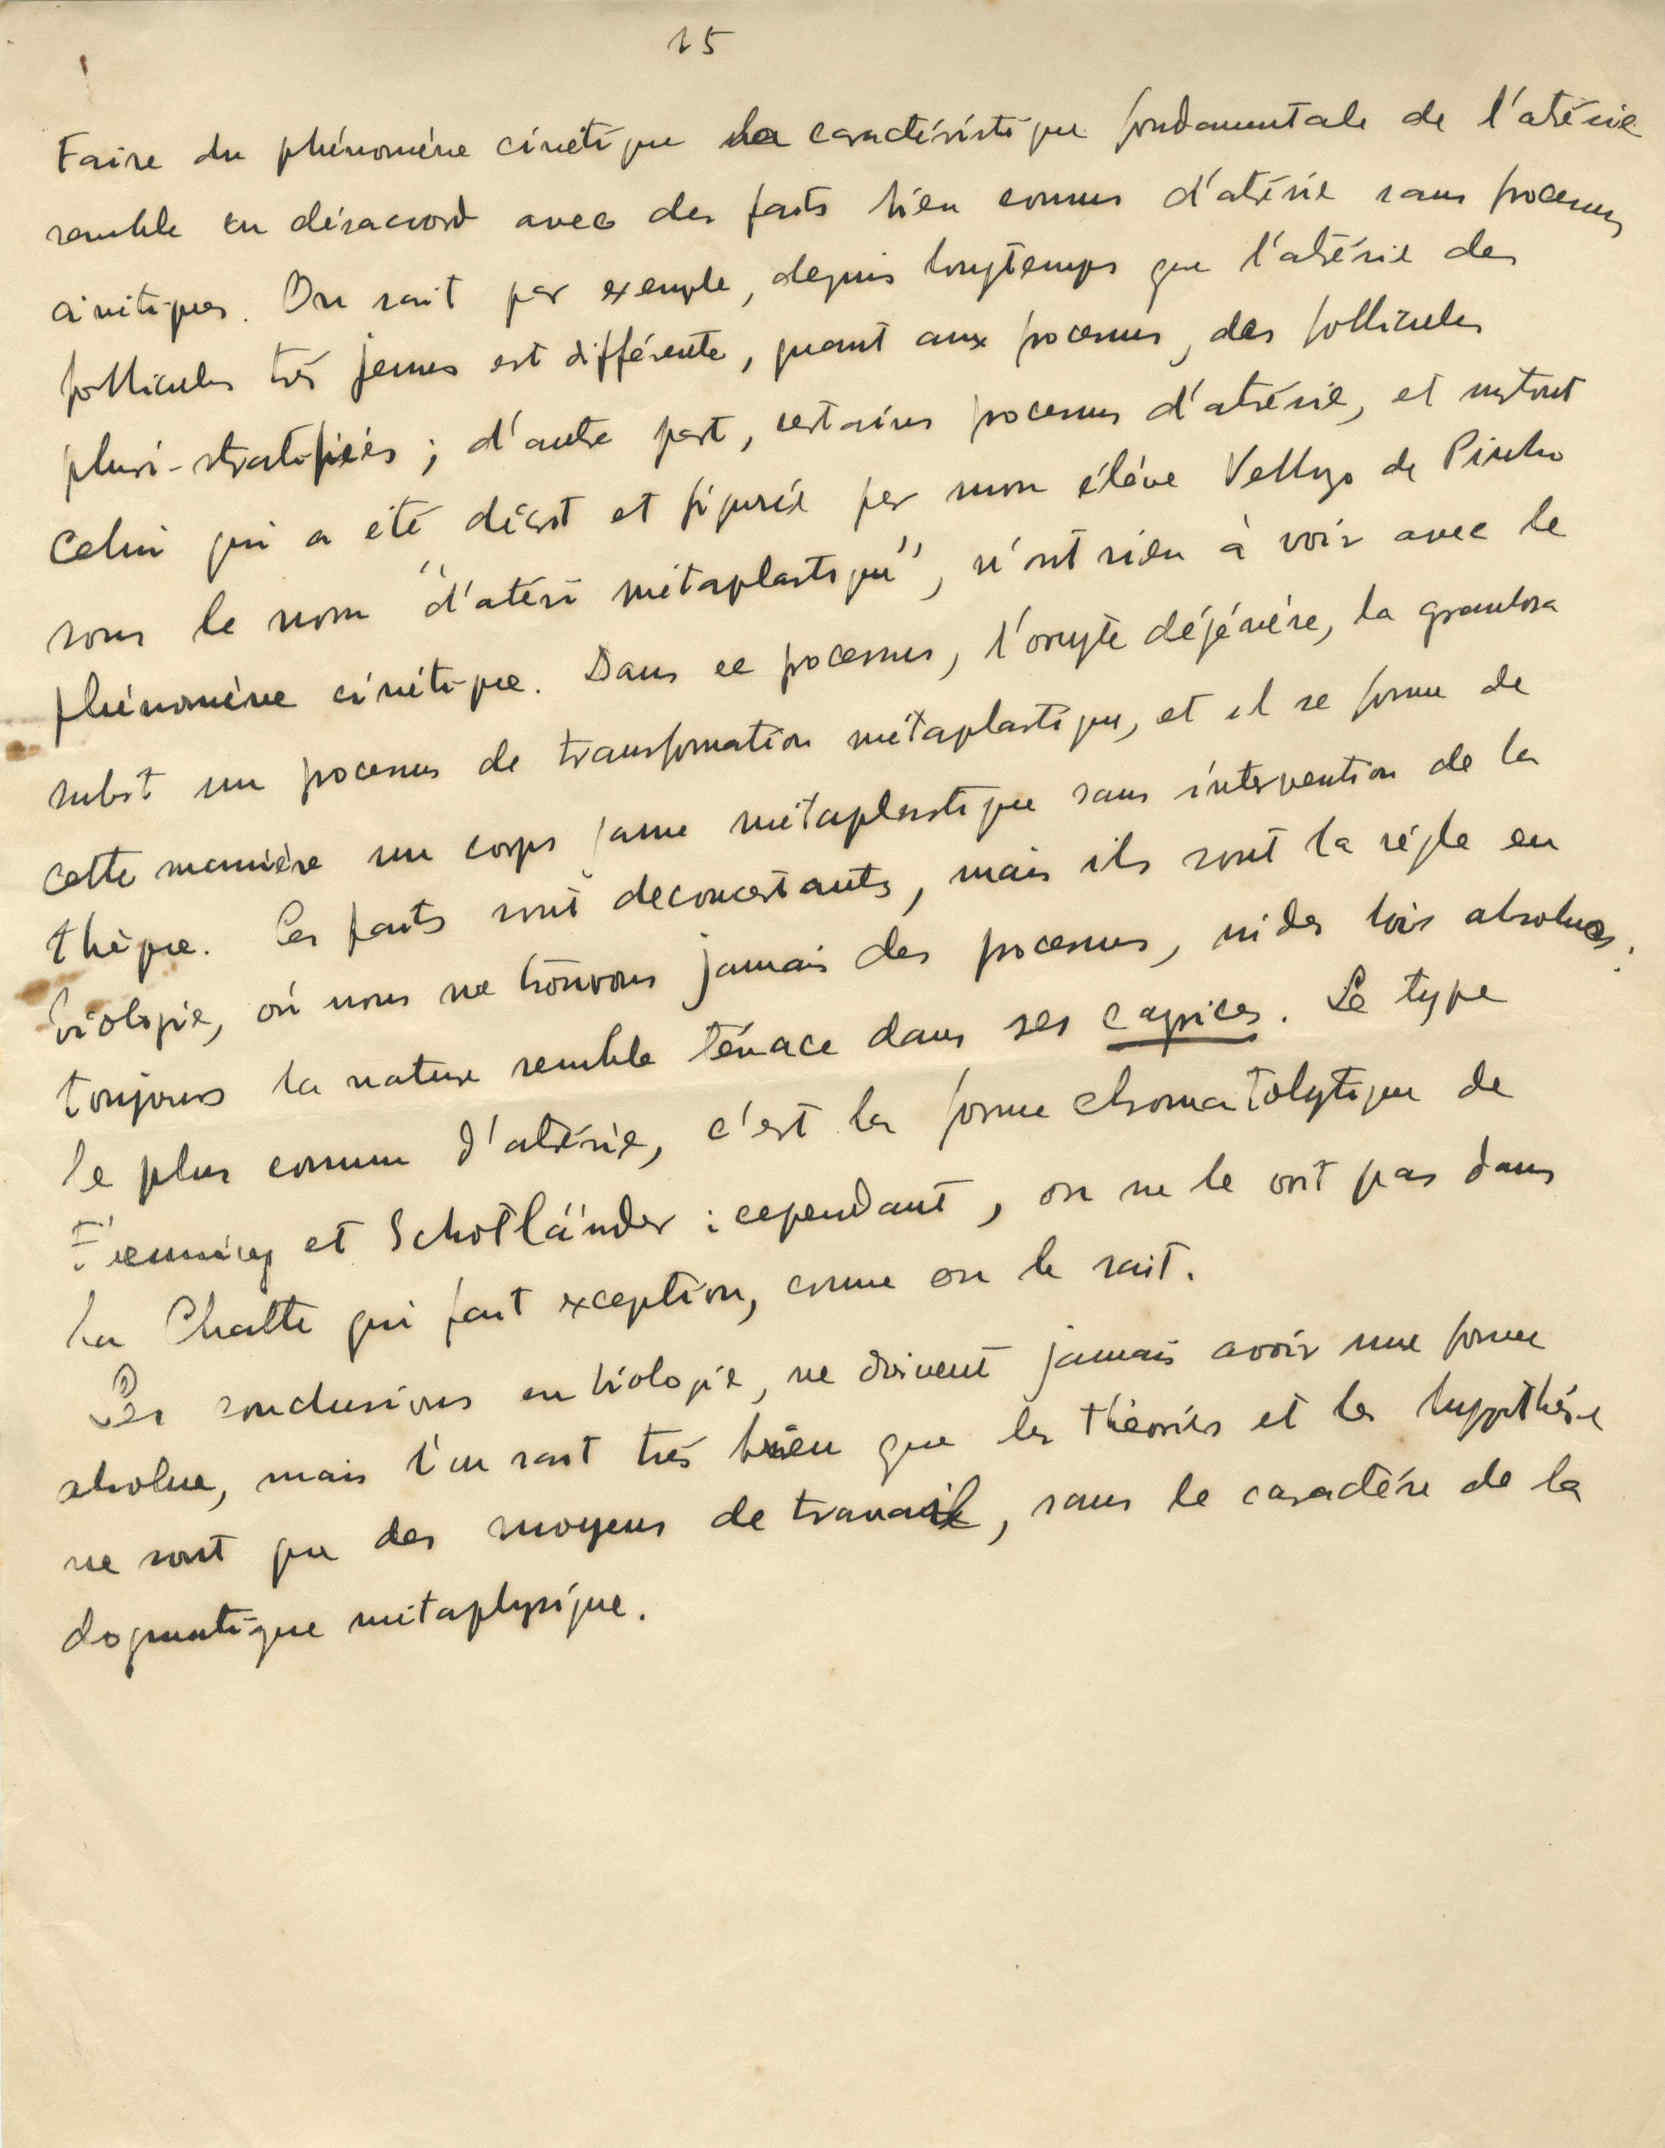 15
Faire du phénomène cinétique la caractéristique fondamentale de l'atrésie
semble en désaccord avec des faits bien connus d'atrésie sans processus
cinétiques. On sait par exemple, depuis longtemps que l'atrésie des
follicules très jeunes est différente, quant aux processus, des follicules
pluri-stratifiés ; d'autre part, certains processus d'atrésie, et surtout
celui qui a été décrit et figuré par mon élève Vellozo de Pinho
sous le nom "d'atési métaplastique", n'ont rien à voir avec le
phénomène cinétique. Dans ce processus, l'ovocyte dégénère, la granulosa
subit un processus de transformation métaplastique, et il se forme de
cette manière un corps jaune métaplastique sans intervention de la
thèque. Ces faits sont deconcertants, mais ils sont la règle en
biologie, où nous ne trouvons jamais des processus, ni des lois absolues.
toujours la nature semble ténace dans ses caprices. Le type
le plus commun d'atrésie, c'est la forme chromatolytique de
et Schottländer : cependant, on ne le voit pas dans
la Chatte qui fait exception, comme on le sait.
Les conclusions en biologie, ne doivent jamais avoir une forme
absolue, mais l'on sait très bien que les théories et les hypothèse
ne sont que des moyens de travail, sans le caractère de la
dogmatique métaphysique.